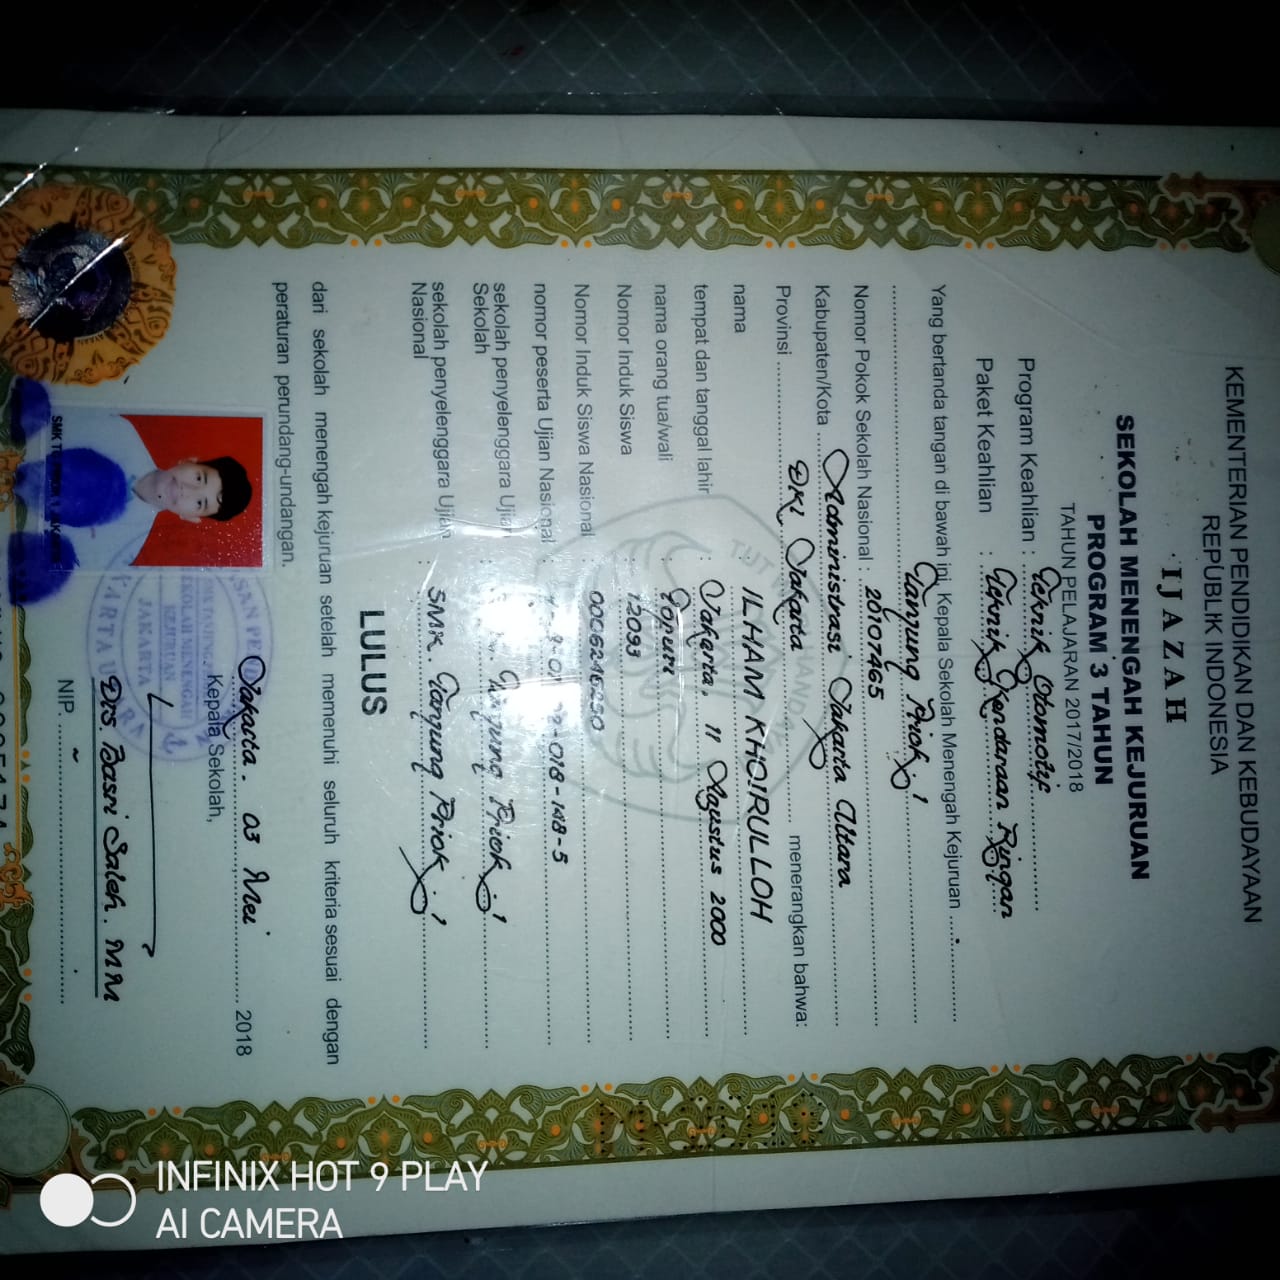 KEMENTERIAN PENDIDIKAN DAN KEBUDAYAAN
REPUBLIK INDONESIA
IJAZAH
SEKOLAH MENENGAH KEJURUAN
PROGRAM 3 TAHUN
TAHUN PELAJARAN 2017/2018
Program Keahlian : Teknik Otomotif
Paket Keahlian : Teknik Kendaraan Ringan
Yang bertanda tangan di bawah ini, Kepala Sekolah Menengah Kejuruan
Tanjung Priok . 1
Nomor Pokok Sekolah Nasional : 20107465
Kabupaten/Kota Administrasi Jakarta Utara
Provinsi DKI Jakarta menerangkan bahwa:
nama ILHAM KHOIRULLOH
tempat dan tanggal lahir : Jakarta, 11 Agustus 2000
nama orang tua/wali : Topuri
Nomor Induk Siswa : 12093
Nomor Induk Siswa Nasional : 0006246250
nomor peserta Ujian Nasional : -018-148-5
sekolah penyelenggara Ujian
Sekolah : Tanjung Priok . 1
sekolah penyelenggara Ujian
Nasional : SMK. Tanjung Priok . 1
LULUS
dari sekolah menengah kejuruan setelah memenuhi seluruh kriteria sesuai dengan
peraturan perundang-undangan.
Jakarta. 03 Mei 2018
Kepala Sekolah,
SEKOLAH MENENGAH
KEJURUAN
JAKARTA
Drs. Basri Saleh. MM
NIP. -
INFINIX HOT 9 PLAY
AI CAMERA